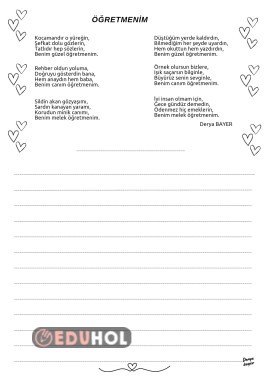 ÖĞRETMENİM
Kocamandır o yüreğin,
Şefkat dolu gözlerin,
Tatlıdır hep sözlerin,
Benim güzel öğretmenim.
Rehber oldun yoluma,
Doğruyu gösterdin bana,
Hem anaydın hem baba,
Benim canım öğretmenim.
Sildin akan gözyaşımı,
Sardın kanayan yaramı,
Korudun minik canımı,
Benim melek öğretmenim.
Düştüğüm yerde kaldırdın,
Bilmediğim her şeyde uyardın,
Hem okuttun hem yazdırdın,
Benim güzel öğretmenim.
Örnek olursun bizlere,
Işık saçarsın bilginle,
Büyürüz senin sevginle,
Benim canım öğretmenim.
İyi insan olmam için,
Gece gündüz demedin,
Ödenmez hiç emeklerin,
Benim melek öğretmenim.
Derya BAYER
EDUHOL
Derya